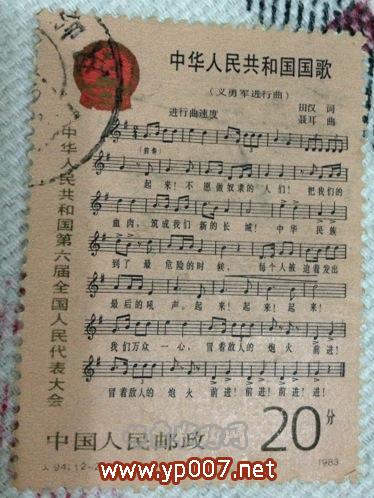 中华人民共和国国歌
(义勇军进行曲)
田汉 词
聂耳 曲
进行曲速度
(前奏)
起来!不愿做奴隶的人们!把我们的
血肉,筑成我们新的长城!中华民族
到了最危险的时候,每个人被迫着发出
最后的吼声。起来!起来!起来!
我们万众一心,冒着敌人的炮火前进!
冒着敌人的炮火前进!前进!前进!进!
中华人民共和国第六届全国人民代表大会
中国人民邮政
20分
J.94.(2-2)
1983
www.yp007.net